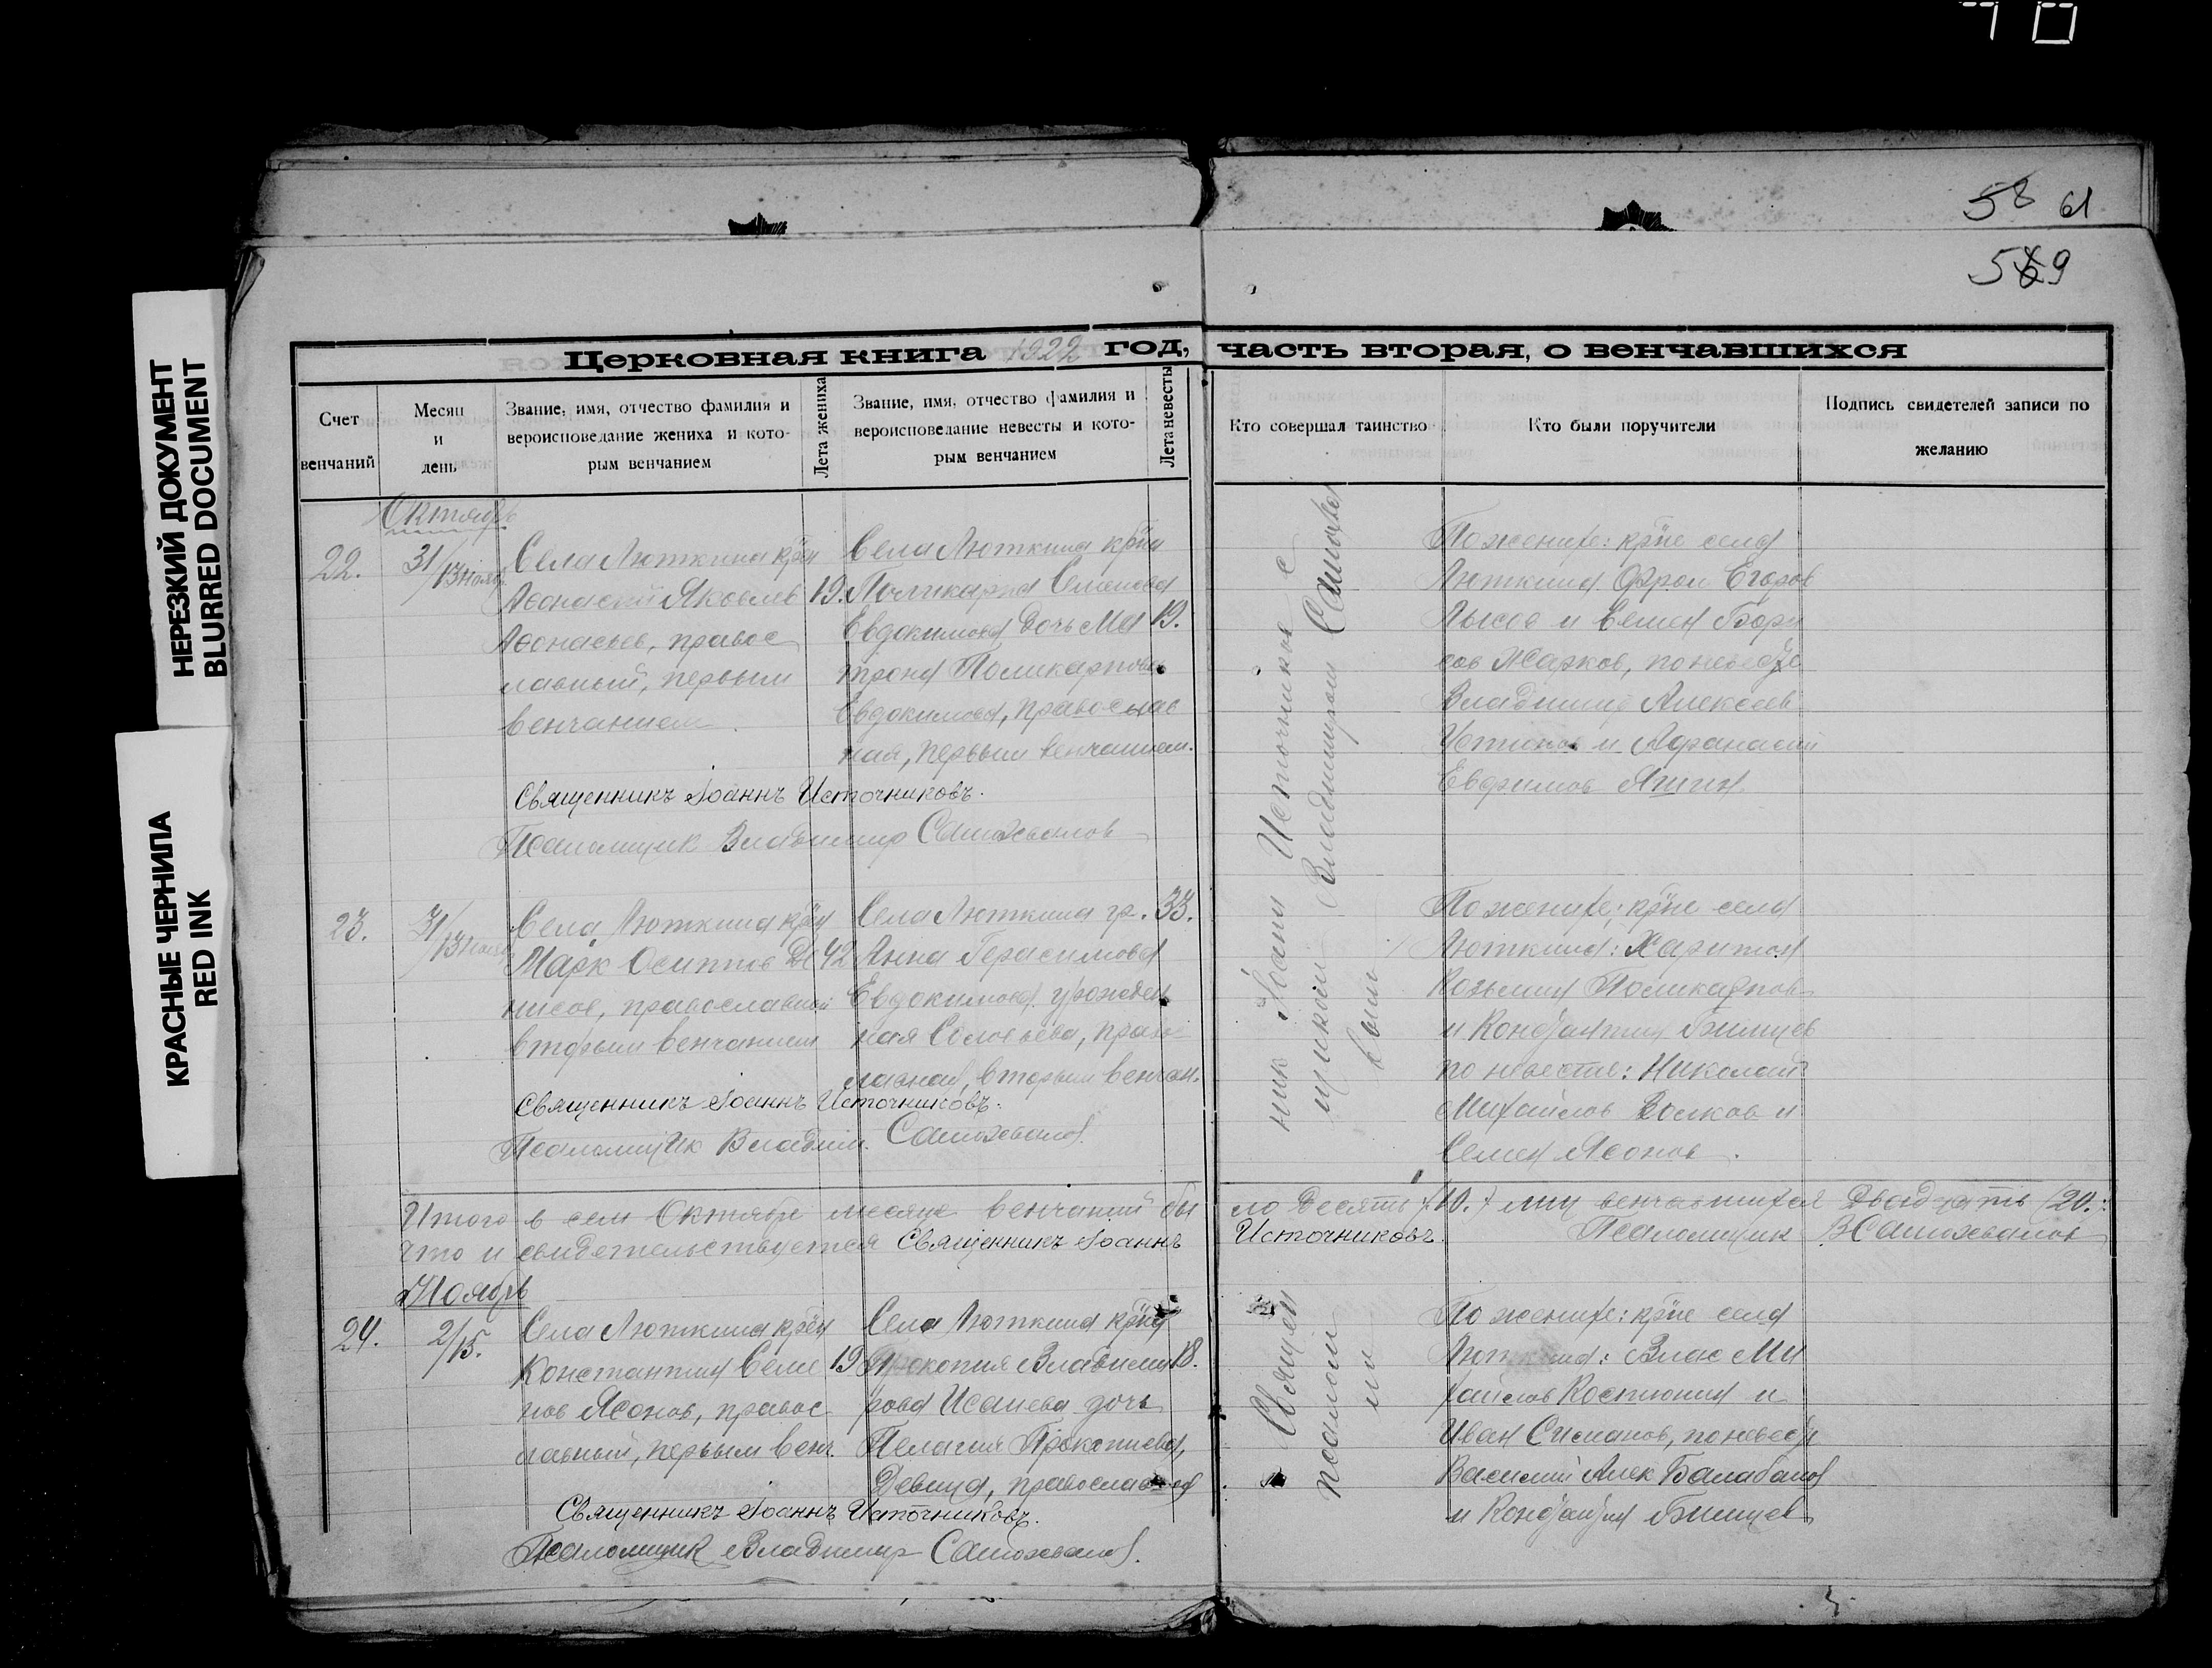 58 61
569
НЕРЕЗКИЙ ДОКУМЕНТ
BLURRED DOCUMENT
КРАСНЫЕ ЧЕРНИЛА
RED INK
Церковная книга 1922 год, часть вторая, о венчавшихся
Счет венчаний
Месяц и день
Звание, имя, отчество фамилия и вероисповедание жениха и которым венчанием
Лета жениха
Звание, имя, отчество фамилия и вероисповедание невесты и которым венчанием
Лета невесты
Кто совершал таинство
Кто были поручители
Подпись свидетелей записи по желанию
Октябрь
22.
31/13 нояб.
Села Люткина крин
Аѳонасий Яковлев
Аѳонасьев, правос
лавный, первым
венчанием
19.
Села Люткина крин
Поликарпа Семенова
Евдокимова дочь Ма
трона Поликарпова
Евдокимова, православ
ная, первым венчанием.
19.
По женихе: кр̃не села
Люткина Фрол Егоров
Лысов и Семен Бори
сов Жарков, по невесте
Владимир Алексеев
Устинов и Афанасий
Евфимов Яшин
Священникъ Іоаннъ Источниковъ.
Псаломщик Владимир Самохвалов
23.
31/13 нояб
Села Люткина крин
Марк Осиппов Де
нисов, православный
вторым венчанием
42
Села Люткина гр.
Анна Герасимова
Евдокимова урожден
ная Соловьева, правос
лавная, вторым венчан.
33.
По женихе: кр̃не села
Люткина: Харитон
Козьмин Поликарпов
и Кондратий Бинцев
по невесте: Николай
Михайлов Волков и
Семен Ясонов.
Священникъ Іоаннъ Источниковъ.
Псаломщик Владим. Самохвалов
Итого в сем Октябре месяце венчаний бы ло десять (10.) лиц венчавшихся двадцать (20.
что и свидетельствуется Священникъ Іоаннъ Источниковъ. Псаломщик В Самохвалов
Ноябрь
24.
2/15.
Села Люткина крин
Константин Семе
нов Ясонов, правос
лавный, первым венч.
19
Села Люткина крин
Прокопия Владими
рова Исаева дочь
Пелагия Прокопиева,
девица, православная
18.
По женихе: кр̃не села
Люткина: Влас Ми
хайлов Костюнин и
Иван Симанов, по невесте
Василий Алек Балабанов
и Кондратий Бинцев
Священникъ Іоаннъ Источниковъ.
Псаломщик Владимир Самохвалов.
Священ
ник Іоанн Источников с
псалом
щиком Владимиром Самохва
ловым